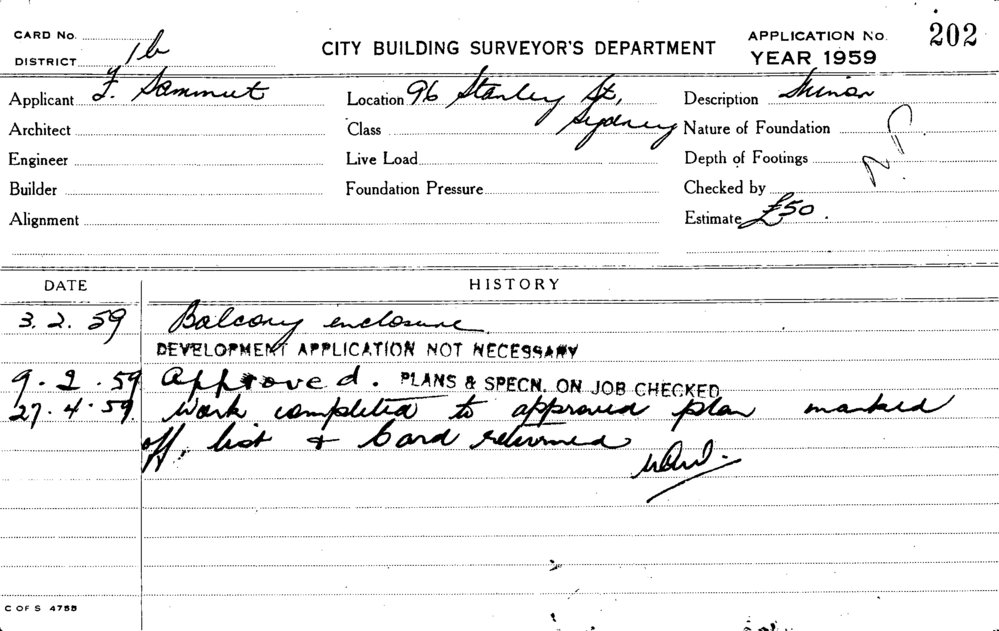 CARD No.
DISTRICT 1b
CITY BUILDING SURVEYOR'S DEPARTMENT
APPLICATION No. 202
YEAR 1959
Applicant F. Sammut
Location 96 Stanley St, Sydney
Description Minor
Architect
Class
Nature of Foundation
Engineer
Live Load
Depth of Footings
Builder
Foundation Pressure
Checked by
Alignment
Estimate £50.
DATE
HISTORY
3.2.59 Balcony enclosure
DEVELOPMENT APPLICATION NOT NECESSARY
9.2.59 Approved. PLANS & SPECN. ON JOB CHECKED
27.4.59. Work completed to approved plan marked
off, list & Card returned
C OF S 4755